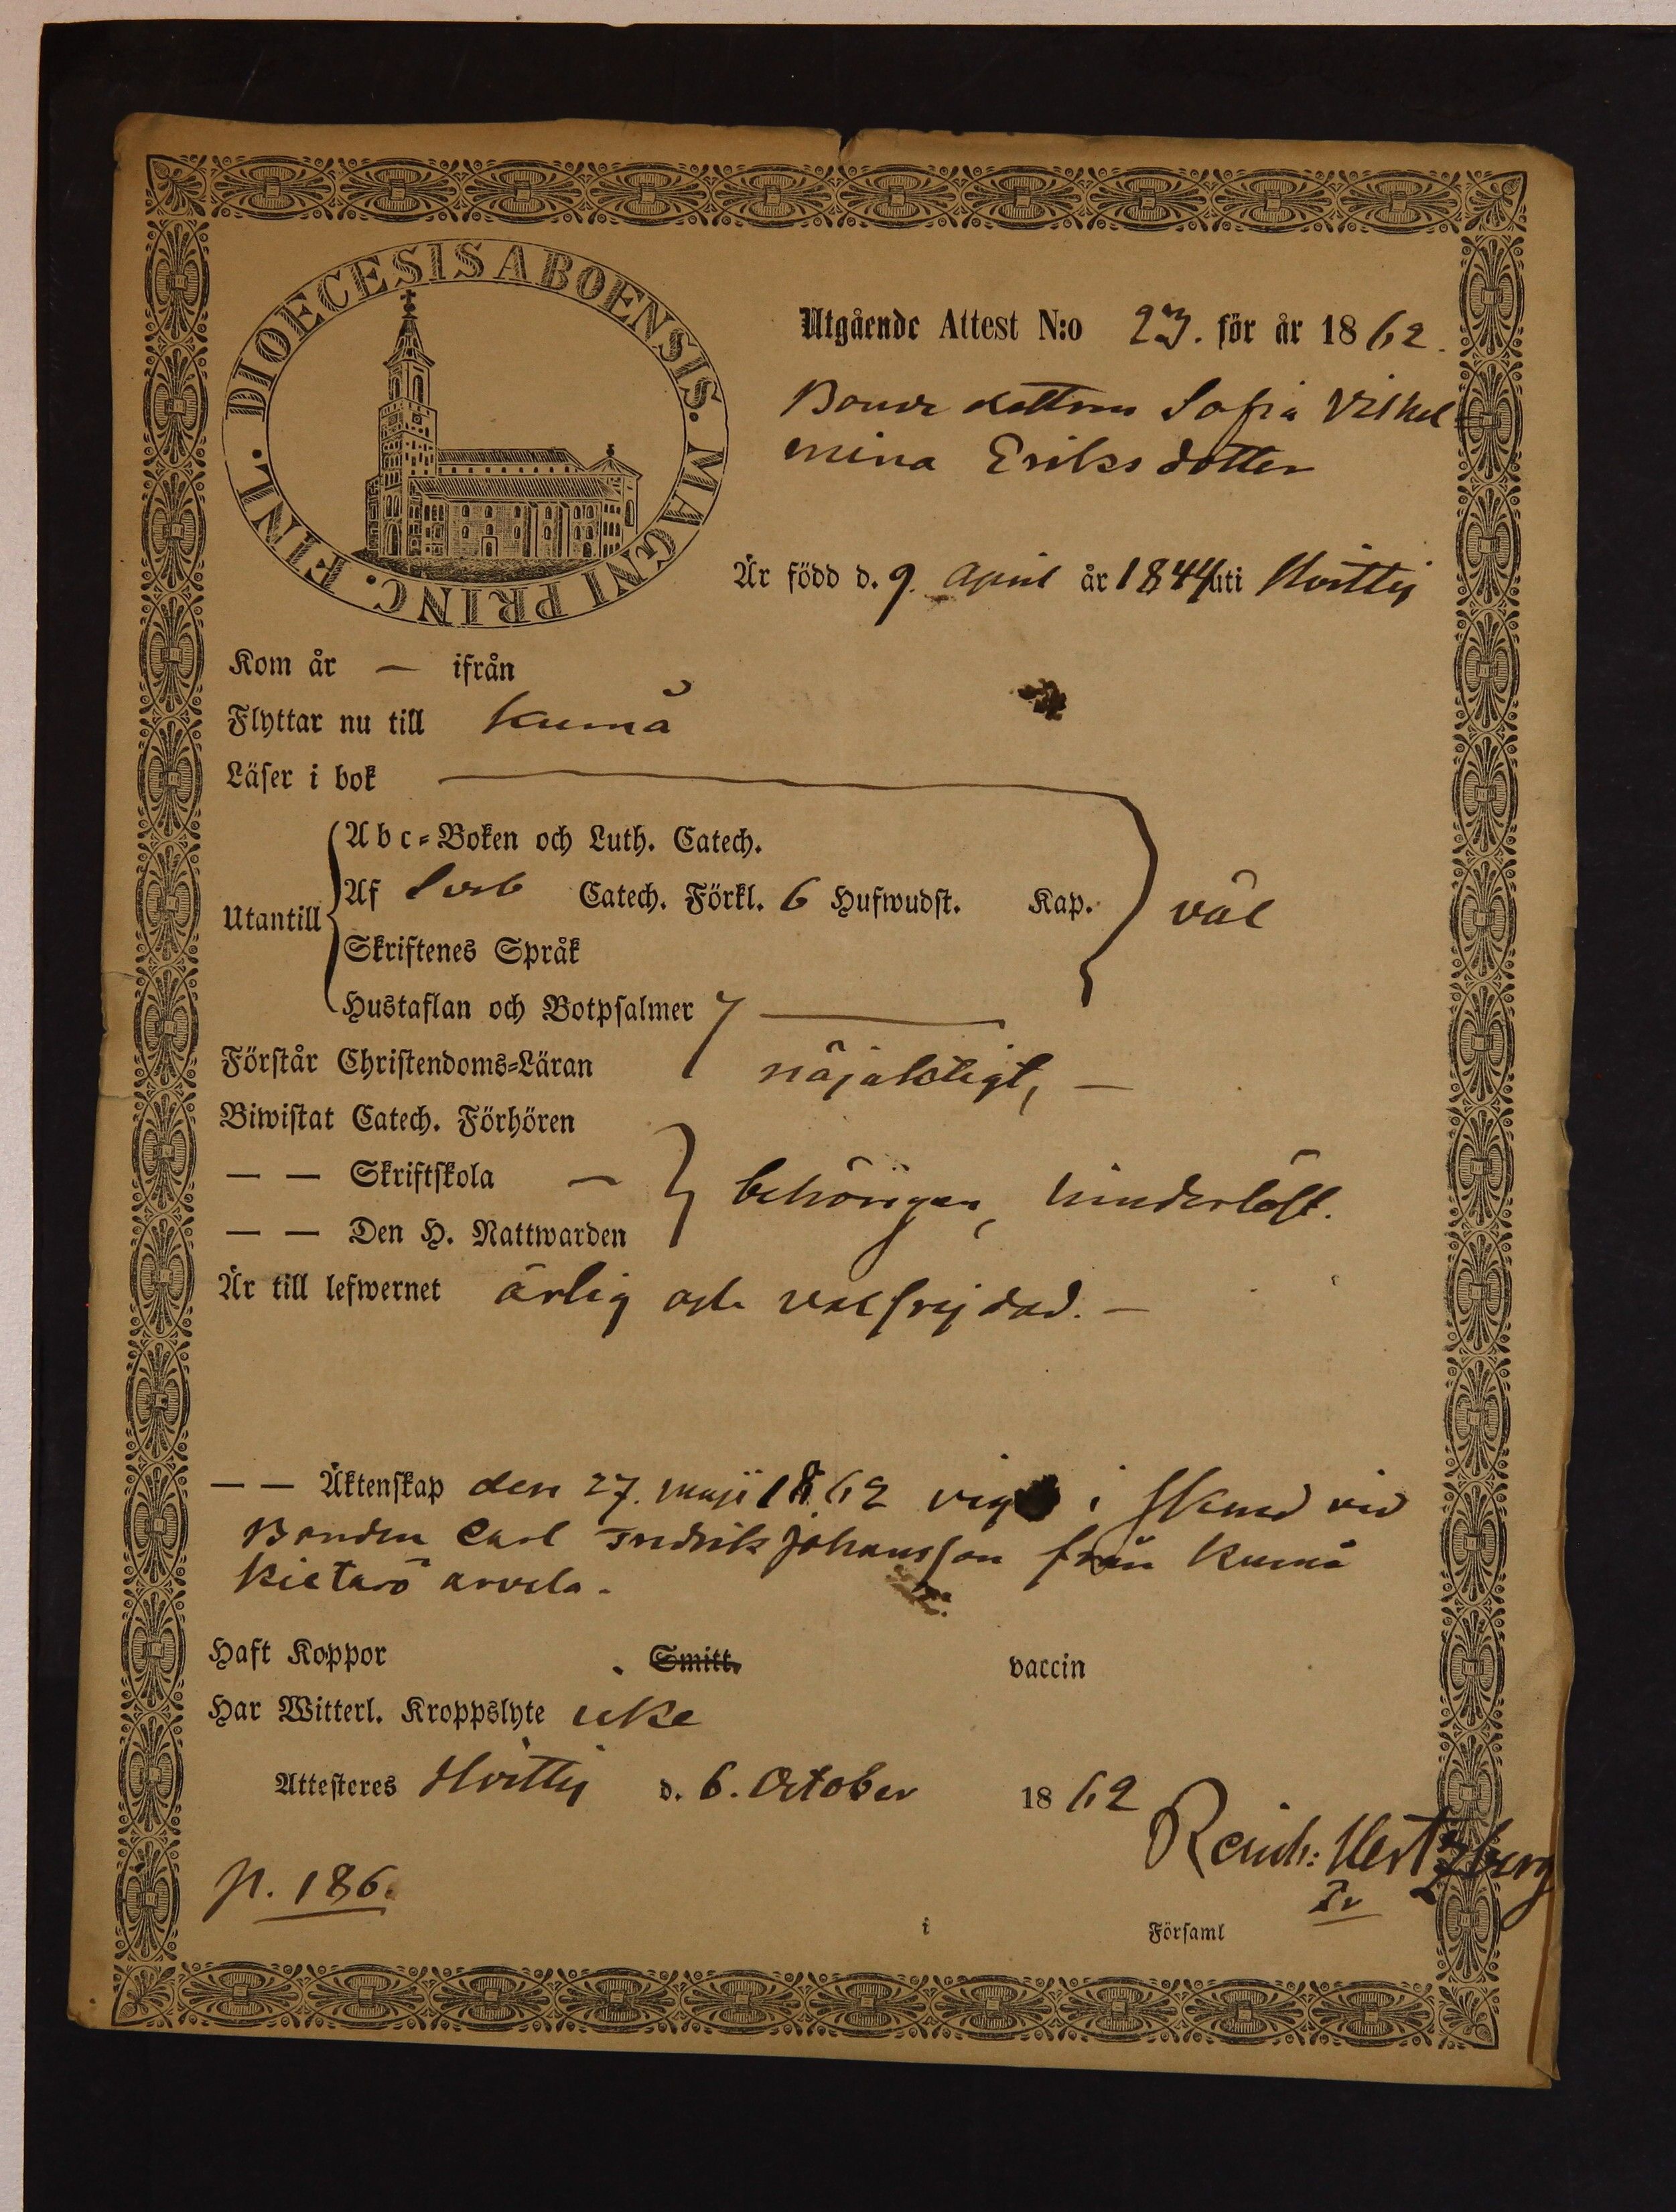 DIOECESIS ABOENSIS. MAGNI PRINC. FINL.
Utgående Attest N:o 23. för år 1862.
Bonde dottren Sofia Vilhel
mina Eriksdotter
Är född d. 9. April år 1844 uti Hvittis
Kom år — ifrån
Flyttar nu till Kumå
Läser i bok
Utantill
Abc-Boken och Luth. Catech.
Af Sveb Catech. Förkl. 6 Hufwudst. Kap. väl
Skriftenes Språk
Hustaflan och Botpsalmer
Förstår Christendoms-Läran nöjaktigt, —
Biwistat Catech. Förhören
— — Skriftskola —
behörigen, hinderlöst.
— — Den H. Nattwarden
Är till lefwernet ärlig och välfrejdad. —
— — Äktenskap den 27. Maji 1862 i vid
Bonden Carl Fredrik Johansson från Kumå
arvela.
Haft Koppor . Smitt. vaccin
Har Witterl. Kroppslyte icke
Attesteres Hvittis d. 6. October 1862
Reinh: Hertzberg
p. 186.
i Församl